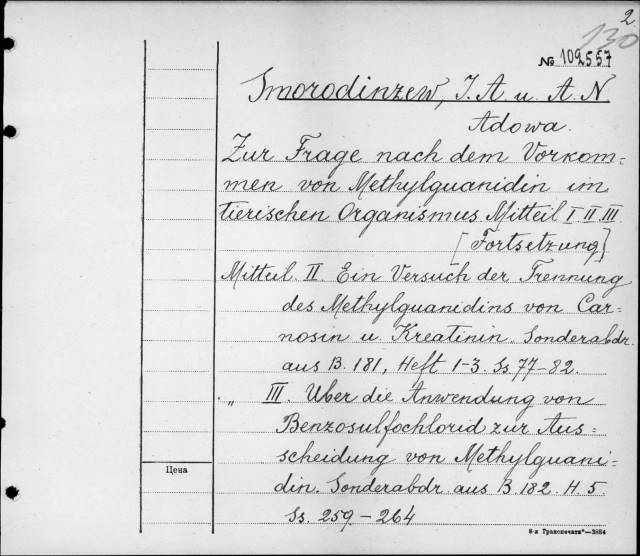 2
130
№ 109557
Smorodinzew, I. A u. A. N
Adowa.
Zur Frage nach dem Vorkom=
men von Methylguanidin im
tierischen Organismus. Mitteil I II III.
[Fortsetzung]
Mitteil II Ein Versuch der Trennung
des Methylguanidins von Car=
nosin u. Kreatinin. Sonderabdr.
aus B. 181, Heft 1-3. Ss. 77-82.
„ III. Uber die Anwendung von
Benzosulfochlorid zur Aus=
scheidung von Methylguani=
din. Sonderabdr. aus B. 182. H. 5.
Ss. 259-264
Цена
8-я Транспечать"—3884